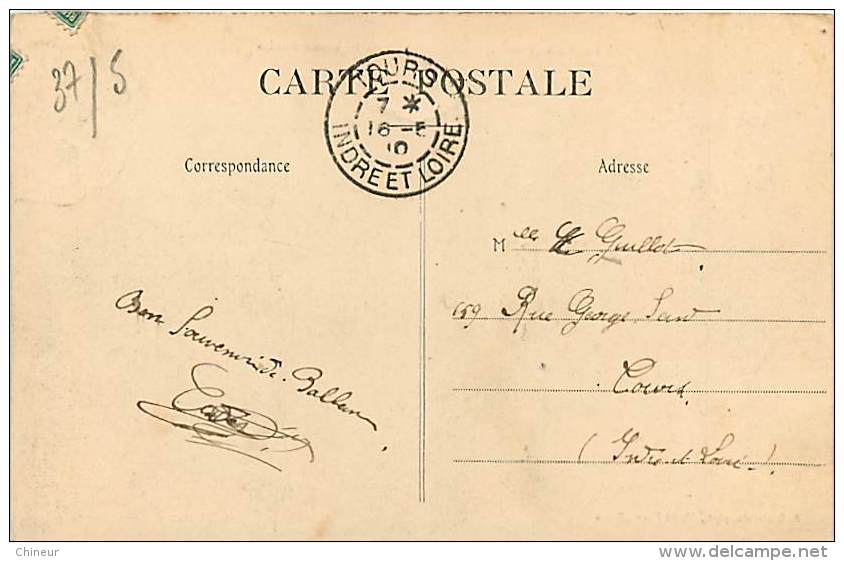 37/5
CARTE POSTALE
TOURS
7 *
16 -5
10
INDRE ET LOIRE
Correspondance
Adresse
Mlle Guillot
159 Rue George Sand
Tours
(Indre et Loire)
Bon Souvenir de Ballan
Chineur
www.delcampe.net